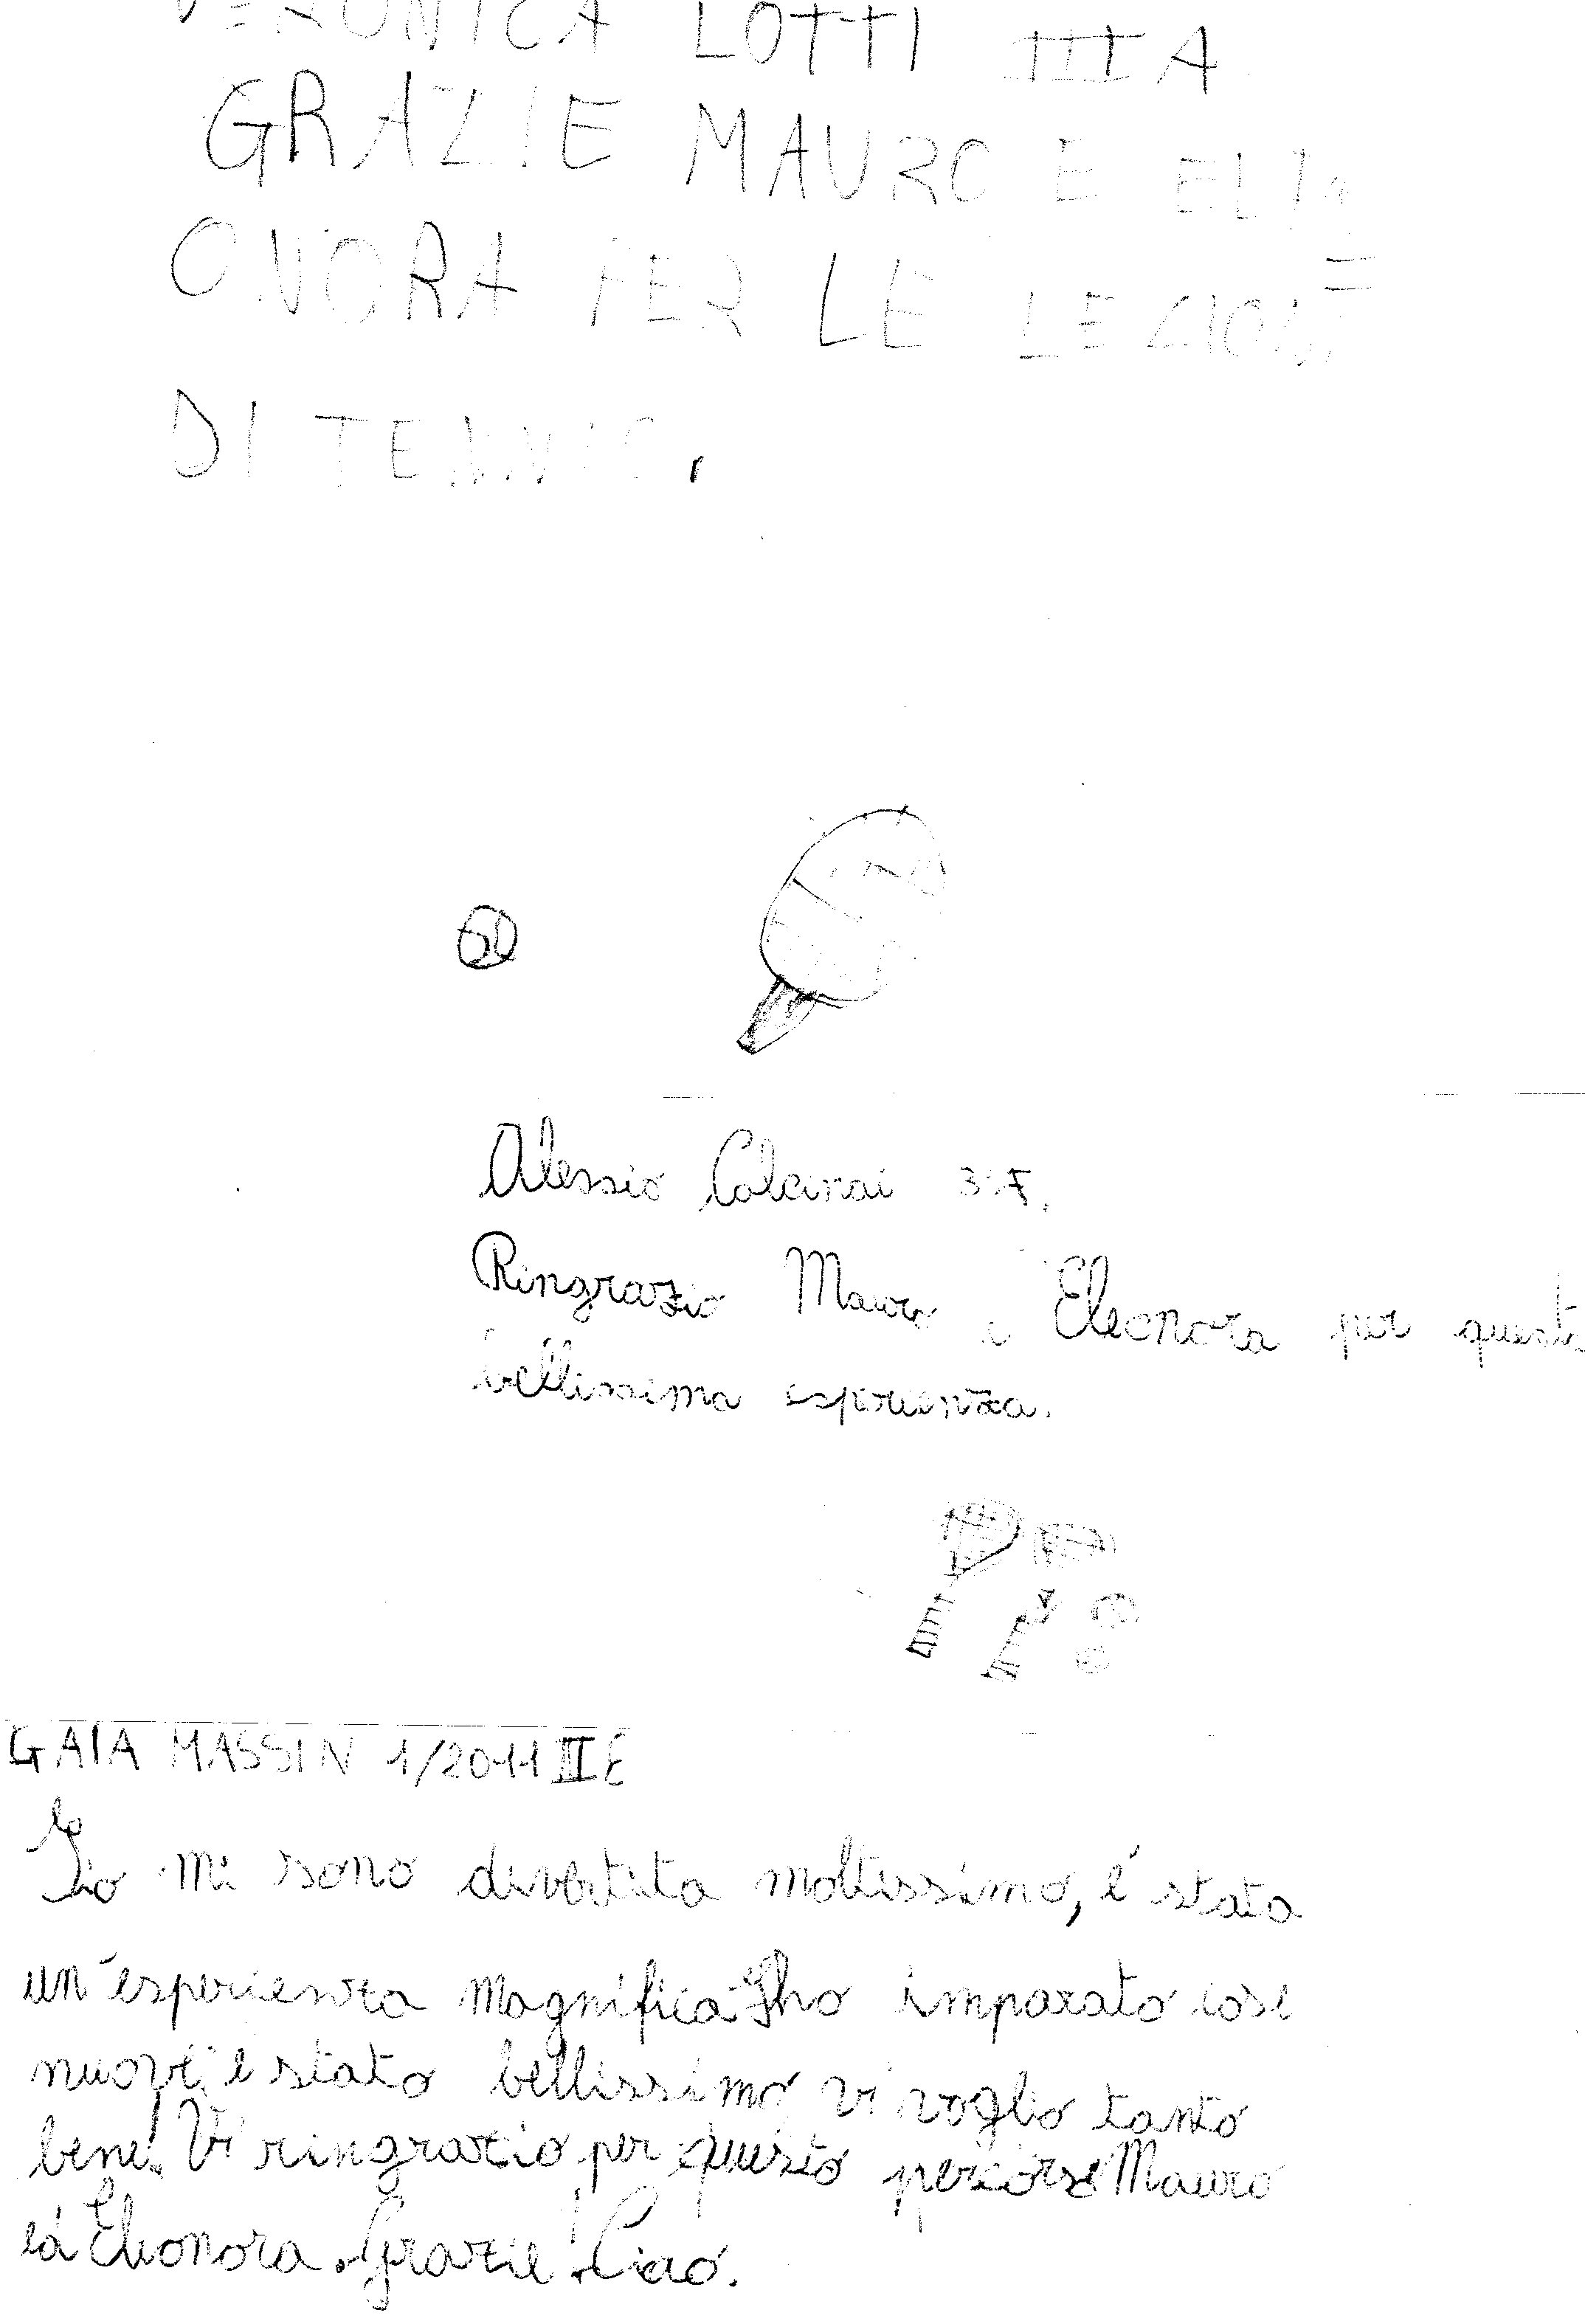 VERONICA LOTTI III A
GRAZIE MAURO E ELE
ONORA PER LE LEZIONI
DI TENNIS.
Alessio Calcinai 3°F.
Ringrazio Mauro e Eleonora per questa
bellissima esperienza.
GAIA MASSIN 1/2011 III E
Io
Io mi sono divertita moltissimo, é stata
un'esperienza magnifica ho imparato cose
nuove, é stato bellissimo vi voglio tanto
bene! Vi ringrazio per questo percorso Mauro
Eleonora. Grazie! Ciao.